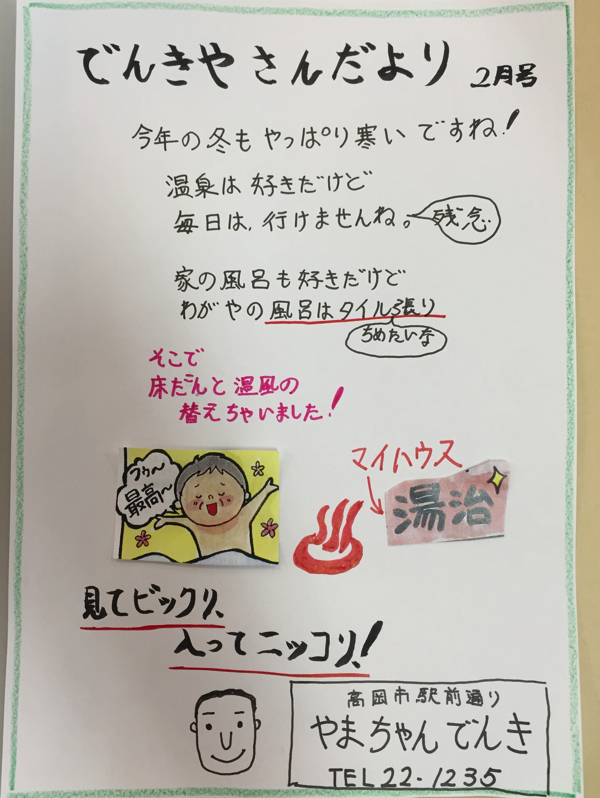 でんきやさんだより 2月号
今年の冬もやっぱり寒いですね!
温泉は好きだけど
毎日は、行けませんね。
残念
家の風呂も好きだけど
わがやの風呂はタイル張り
ちめたいな
そこで
床だんと温風の
替えちゃいました!
フゥ〜
最高〜
マイハウス
湯治
見てビックリ、
入ってニッコリ、!
高岡市駅前通り
やまちゃんでんき
TEL22-1235